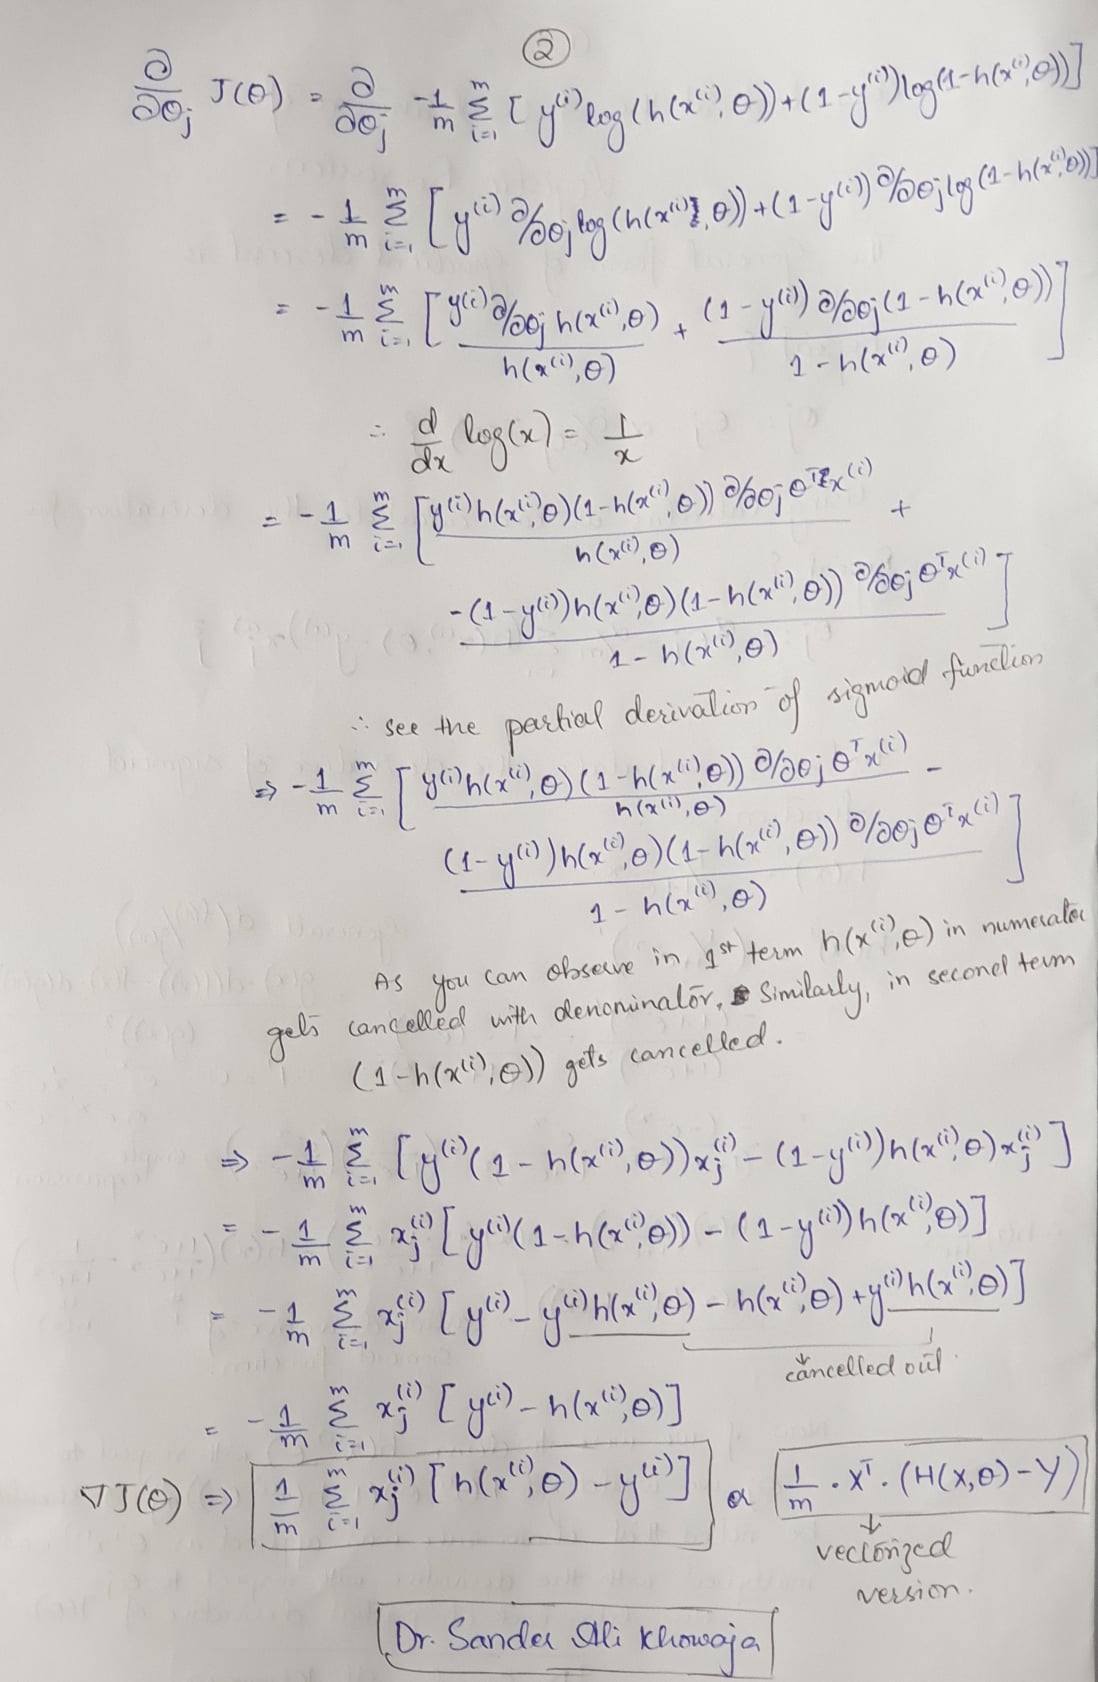 ②
∂/∂θj J(θ) = ∂/∂θj -1/m Σ_{i=1}^{m} [ y^(i) log(h(x^(i), θ)) + (1-y^(i)) log(1-h(x^(i), θ)) ]
= -1/m Σ_{i=1}^{m} [ y^(i) ∂/∂θj log(h(x^(i), θ)) + (1-y^(i)) ∂/∂θj log(1-h(x^(i), θ)) ]
= -1/m Σ_{i=1}^{m} [ y^(i) ∂/∂θj h(x^(i), θ) / h(x^(i), θ) + (1-y^(i)) ∂/∂θj (1-h(x^(i), θ)) / 1-h(x^(i), θ) ]
∴ d/dx log(x) = 1/x
= -1/m Σ_{i=1}^{m} [ y^(i) h(x^(i), θ)(1-h(x^(i), θ)) ∂/∂θj θ^T x^(i) / h(x^(i), θ) +
-(1-y^(i)) h(x^(i), θ)(1-h(x^(i), θ)) ∂/∂θj θ^T x^(i) / 1-h(x^(i), θ) ]
∴ see the partial derivation of sigmoid function
⇒ -1/m Σ_{i=1}^{m} [ y^(i) h(x^(i), θ)(1-h(x^(i), θ)) ∂/∂θj θ^T x^(i) / h(x^(i), θ) -
(1-y^(i)) h(x^(i), θ)(1-h(x^(i), θ)) ∂/∂θj θ^T x^(i) / 1-h(x^(i), θ) ]
As you can observe in 1st term h(x^(i), θ) in numerator
gets cancelled with denominator, Similarly, in second term
(1-h(x^(i), θ)) gets cancelled.
⇒ -1/m Σ_{i=1}^{m} [ y^(i) (1-h(x^(i), θ)) xj^(i) - (1-y^(i)) h(x^(i), θ) xj^(i) ]
= -1/m Σ_{i=1}^{m} xj^(i) [ y^(i) (1-h(x^(i), θ)) - (1-y^(i)) h(x^(i), θ) ]
= -1/m Σ_{i=1}^{m} xj^(i) [ y^(i) - y^(i) h(x^(i), θ) - h(x^(i), θ) + y^(i) h(x^(i), θ) ]
cancelled out
= -1/m Σ_{i=1}^{m} xj^(i) [ y^(i) - h(x^(i), θ) ]
∇J(θ) ⇒ 1/m Σ_{i=1}^{m} xj^(i) [ h(x^(i), θ) - y^(i) ] or 1/m · X^T · (H(X, θ) - Y)
vectorized
version.
Dr. Sander Ali Khowaja